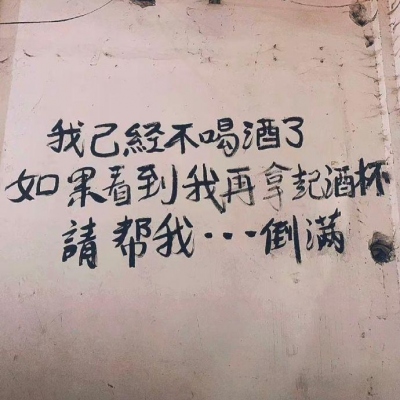 我已经不喝酒了
如果看到我再拿起酒杯
請帮我···倒满